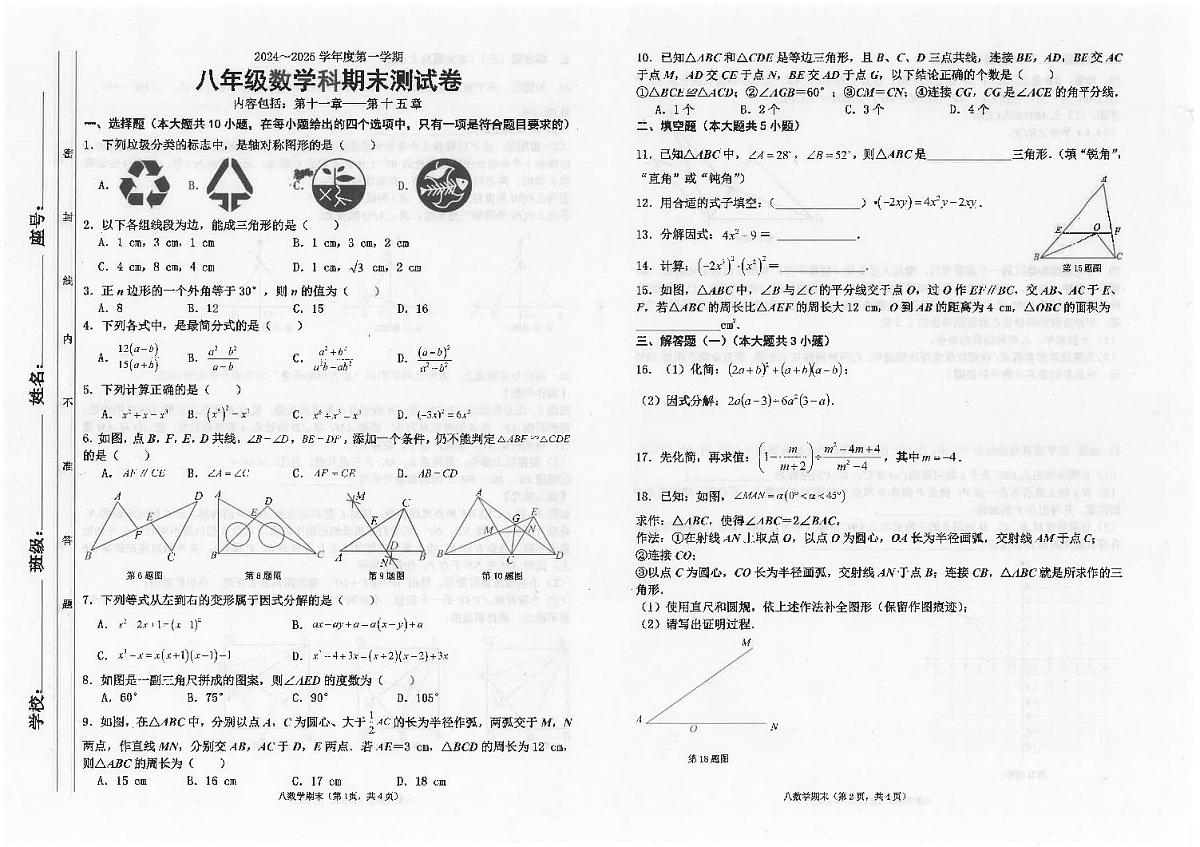 2024~2025学年度第一学期
八年级数学科期末测试卷
内容包括：第十一章——第十五章
一、选择题（本大题共10小题，在每小题给出的四个选项中，只有一项是符合题目要求的）
1．下列垃圾分类的标志中，是轴对称图形的是（ ）
A． B． C． D．
2．以下各组线段为边，能成三角形的是（ ）
A．1 cm，3 cm，1 cm B．1 cm，3 cm，2 cm
C．4 cm，8 cm，4 cm D．1 cm，√3 cm，2 cm
3．正n边形的一个外角等于30°，则n的值为（ ）
A．8 B．12 C．15 D．16
4．下列各式中，是最简分式的是（ ）
A．12(a-b)/15(a+b) B．a² b²/a-b C．a²+b²/a²b-ab² D．(a-b)²/a²-b²
5．下列计算正确的是（ ）
A．x²+x=x³ B．(x²)³=x⁵ C．x⁶÷x³=x³ D．(-3x)²=6x²
6．如图，点B，F，E，D共线，∠B=∠D，BE=DF，添加一个条件，仍不能判定△ABF≌△CDE
的是（ ）
A．AF∥CE B．∠A=∠C C．AF=CE D．AB=CD
A D E F B C
A D E B F C
M C A D E B N
A G E M N B C D
第6题图 第8题图 第9题图 第10题图
7．下列等式从左到右的变形属于因式分解的是（ ）
A．x² 2x+1=(x 1)² B．ax-ay+a=a(x-y)+a
C．x³-x=x(x+1)(x-1)-1 D．x²-4+3x=(x+2)(x-2)+3x
8．如图是一副三角尺拼成的图案，则∠AED的度数为（ ）
A．60° B．75° C．90° D．105°
9．如图，在△ABC中，分别以点A，C为圆心、大于1/2AC的长为半径作弧，两弧交于M，N
两点，作直线MN，分别交AB，AC于D，E两点．若AE=3 cm，△BCD的周长为12 cm，
则△ABC的周长为（ ）
A．15 cm B．16 cm C．17 cm D．18 cm
八数学期末（第1页，共4页）
密 封 线 内 不 准 答 题
座号：
姓名：
班级：
学校：
10．已知△ABC和△CDE是等边三角形，且B、C、D三点共线，连接BE，AD，BE交AC
于点M，AD交CE于点N，BE交AD于点G，以下结论正确的个数是（ ）
①△BCE≌△ACD；②∠AGB=60°；③CM=CN；④连接CG，CG是∠ACE的角平分线．
A．1个 B．2个 C．3个 D．4个
二、填空题（本大题共5小题）
11．已知△ABC中，∠A=28°，∠B=52°，则△ABC是____________三角形．（填“锐角”，
“直角”或“钝角”）
12．用合适的式子填空：(____________)•(-2xy)=4x²y-2xy．
13．分解因式：4x²-9=____________．
14．计算：(-2x³)²·(x²)²=____________．
A E O F B C
第15题图
15．如图，△ABC中，∠B与∠C的平分线交于点O，过O作EF∥BC，交AB、AC于E、
F，若△ABC的周长比△AEF的周长大12 cm，O到AB的距离为4 cm，△OBC的面积为
____________cm²．
三、解答题（一）（本大题共3小题）
16．（1）化简：(2a+b)²+(a+b)(a-b)；
（2）因式分解：2a(a-3)+6a²(3-a)．
17．先化简，再求值：(1-m/m+2)÷m²-4m+4/m²-4，其中m=-4．
18．已知：如图，∠MAN=α(0°<α<45°)
求作：△ABC，使得∠ABC=2∠BAC，
作法：①在射线AN上取点O，以点O为圆心，OA长为半径画弧，交射线AM于点C；
②连接CO；
③以点C为圆心，CO长为半径画弧，交射线AN于点B；连接CB，△ABC就是所求作的三
角形．
（1）使用直尺和圆规，依上述作法补全图形（保留作图痕迹）；
（2）请写出证明过程．
M A O N
第18题图
八数学期末（第2页，共4页）